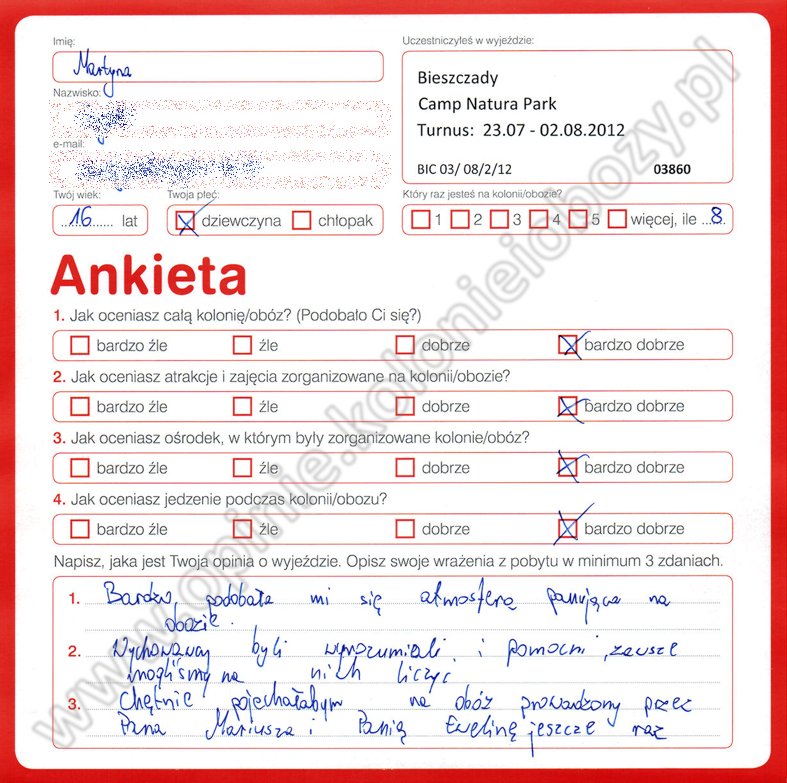 Imię:
Martyna
Nazwisko:
e-mail:
Twój wiek:
16 lat
Twoja płeć:
dziewczyna chłopak
Uczestniczyłeś w wyjeździe:
Bieszczady
Camp Natura Park
Turnus: 23.07 - 02.08.2012
BIC 03/ 08/2/12 03860
Który raz jesteś na kolonii/obozie?
1 2 3 4 5 więcej, ile 8
Ankieta
1. Jak oceniasz całą kolonię/obóz? (Podobało Ci się?)
bardzo źle źle dobrze bardzo dobrze
2. Jak oceniasz atrakcje i zajęcia zorganizowane na kolonii/obozie?
bardzo źle źle dobrze bardzo dobrze
3. Jak oceniasz ośrodek, w którym były zorganizowane kolonie/obóz?
bardzo źle źle dobrze bardzo dobrze
4. Jak oceniasz jedzenie podczas kolonii/obozu?
bardzo źle źle dobrze bardzo dobrze
Napisz, jaka jest Twoja opinia o wyjeździe. Opisz swoje wrażenia z pobytu w minimum 3 zdaniach.
1. Bardzo podobała mi się atmosfera panująca na
obozie.
2. Wychowawcy byli wyrozumiali i pomocni, zawsze
mogliśmy na nich liczyć.
3. Chętnie pojechałabym na obóz prowadzony przez
Pana Mariusza i Panią Ewelinę jeszcze raz
www.opinie.kolonieiobozy.pl